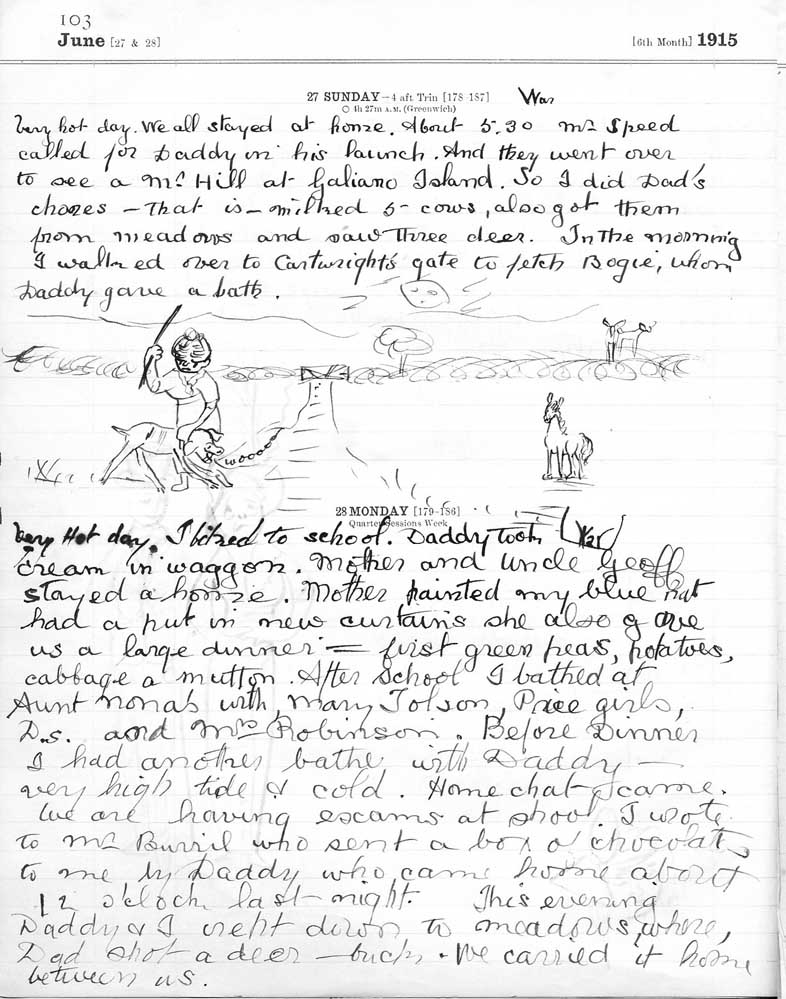 103
June [27 & 28] [6th Month] 1915
27 SUNDAY—4 aft Trin [178-187] War
4h 27m A.M. (Greenwich)
Very hot day. We all stayed at home. About 5.30 Mr Speed
called for Daddy in his launch. And they went over
to see a Mr Hill at Galiano Island. So I did Dad's
chores – That is – milked 5 cows, also got them
from meadows and saw three deer. In the morning
I walked over to Cartwright's gate to fetch Bogie, whom
Daddy gave a bath.
woooo
28 MONDAY [179-186]
Quarter Sessions Week
Very Hot day. I biked to school. Daddy took (War)
cream in waggon. Mother and Uncle Geoff
stayed a home. Mother painted my blue hat
had a put in new curtains she also gave
us a large dinner = first green peas, potatoes,
cabbage a mutton. After School I bathed at
Aunt Nona's with, Mary Tolson, Price girls,
D.s. and Mrs Robinson. Before Dinner
I had another bathe with Daddy –
very high tide & cold. Home chat came.
We are having escams at shool. I wrote
to Mr Burril who sent a box o' chocolats
to me by Daddy who came home about
12 o'clock last night. This evening
Daddy & I crept down to meadows where,
Dad shot a deer – buck. We carried it home
between us.